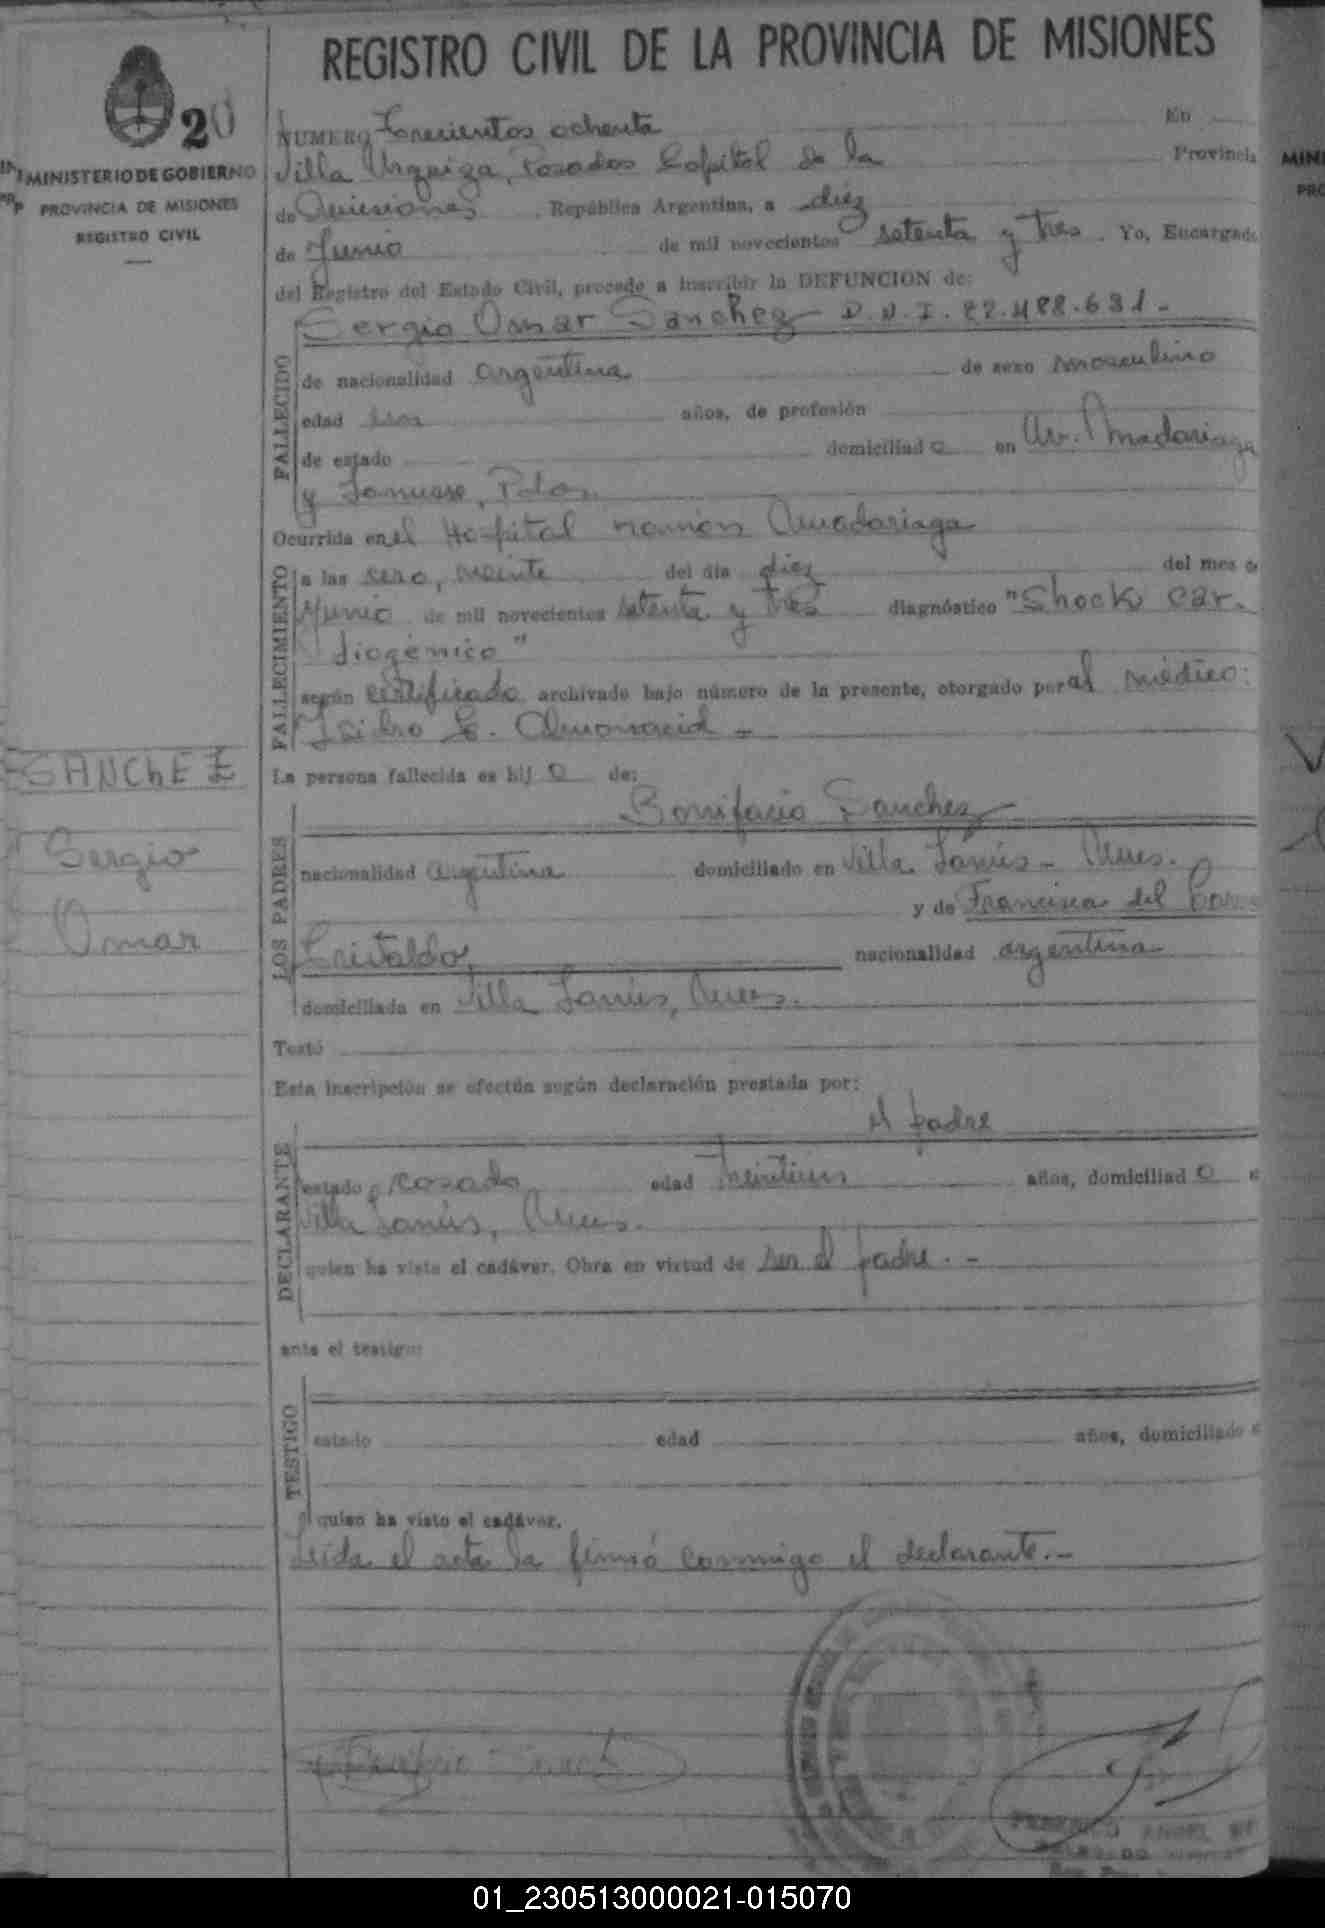 REGISTRO CIVIL DE LA PROVINCIA DE MISIONES
20
MINISTERIO DE GOBIERNO
PROVINCIA DE MISIONES
REGISTRO CIVIL
NUMERO Trecientos ochenta En
Villa Urquiza, Posadas Capital de la Provincia
de Misiones República Argentina, a diez
de Junio de mil novecientos setenta y tres. Yo, Encargado
del Registro del Estado Civil, procedo a inscribir la DEFUNCION de:
FALLECIDO
Sergio Omar Sanchez D.N.I. 22.488.631.-
de nacionalidad argentina de sexo masculino
edad años, de profesión
de estado domiciliado en Av. Madariaga
y Lanusse, Pdas.
Ocurrida en el Hospital ramón Madariaga
FALLECIMIENTO
a las cero, veinte del día diez del mes
Junio de mil novecientos setenta y tres diagnóstico "Shock car.
diogénico"
según certificado archivado bajo número de la presente, otorgado por al médico:
Isidro E. Almonacid -
La persona fallecida es hijo de:
SANCHEZ
Sergio
Omar
LOS PADRES
Bonifacio Sanchez
nacionalidad argentina domiciliado en Villa Lanús - Mnes.
y de Francisca del
nacionalidad argentina
domiciliada en Villa Lanús, Mnes.
Testó
Esta inscripción se efectúa según declaración prestada por:
DECLARANTE
el padre
estado casado edad años, domiciliado
Villa Lanús, Mnes.
quien ha visto el cadáver. Obra en virtud de ser el padre. -
ante el testigo:
TESTIGO
estado edad años, domiciliado
quien ha visto el cadáver.
Leida el acta la firmó conmigo el declarante.-
FEDERICO ANGEL
01_230513000021-015070